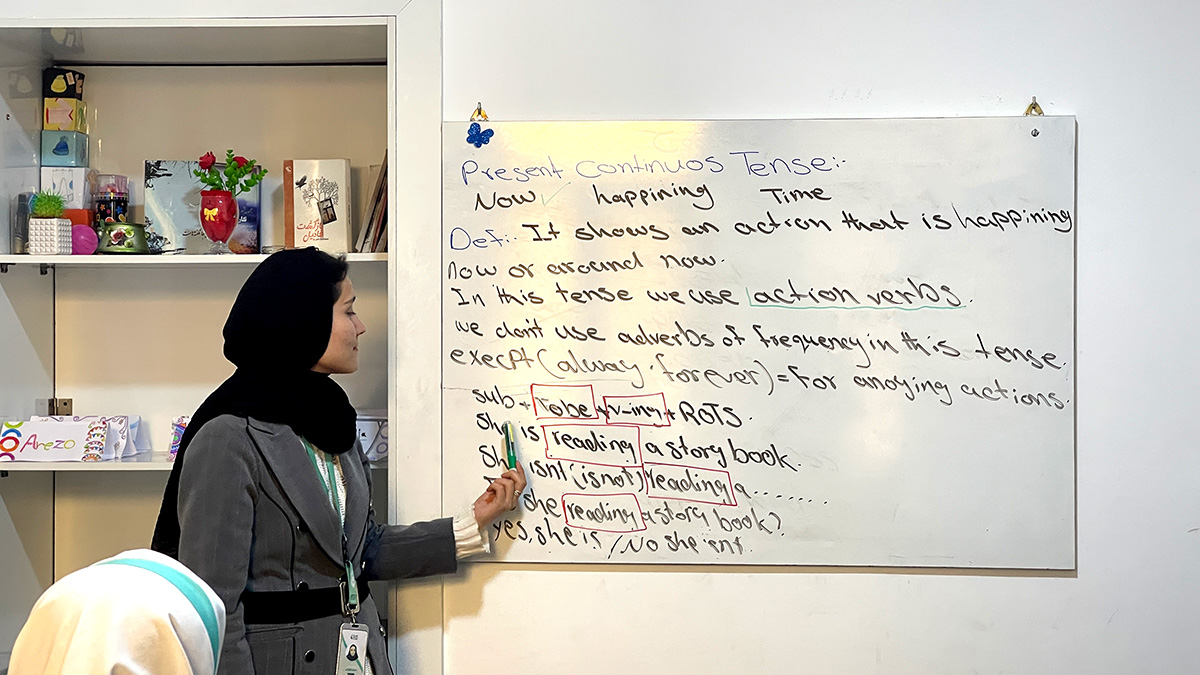 Present Continuos Tense:-
Now ✓ happining Time
Def:- It shows an action that is happining
now or around now.
In this tense we use action verbs.
we don't use adverbs of frequency in this tense.
execpt (alway . forever) = for anoying actions.
sub + Tobe + v-ing + ROTS.
she is reading a story book.
she isnt (is not) reading a .......
she reading a story book?
yes, she is / No she isnt.
Arezo